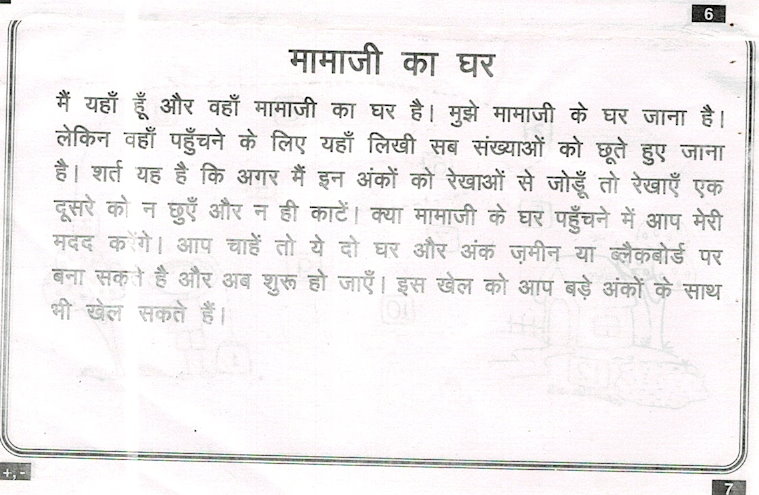 6
मामाजी का घर
मैं यहाँ हूँ और वहाँ मामाजी का घर है। मुझे मामाजी के घर जाना है।
लेकिन वहाँ पहुँचने के लिए यहाँ लिखी सब संख्याओं को छूते हुए जाना
है। शर्त यह है कि अगर मैं इन अंकों को रेखाओं से जोड़ूँ तो रेखाएँ एक
दूसरे को न छुएँ और न ही काटें। क्या मामाजी के घर पहुँचने में आप मेरी
मदद करेंगे। आप चाहें तो ये दो घर और अंक ज़मीन या ब्लैकबोर्ड पर
बना सकते है और अब शुरू हो जाएँ। इस खेल को आप बड़े अंकों के साथ
भी खेल सकते हैं।
+,-
7